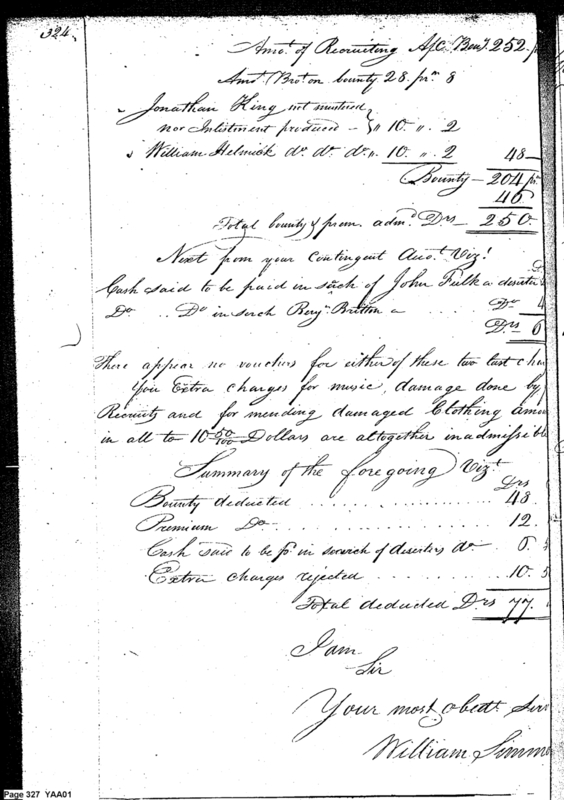 324.
Amt. of Recruiting A/C. Bent. 252. p
Amt. Brot. on bounty 28. prm 8
Jonathan King not mustered
nor Inlistment produced — } " 10. ". 2
William Helmick do. do. do. ". 10 ". 2 48 —
Bounty — 204 pr
46
Total bounty & prem. admd. Drs — 250.
Next from your Contingent Acct. Vizt.
Cash said to be paid in sach of John Fulk a deserter
Do .. Do in serch Benj. Britton a . . . . Do 4
Drs 6
There appear no vouchers for either of these two last cha
Your Extra charges for music, damage done by
Recruits and for mending damaged Clothing amo
in all to 10 50/100 Dollars are altogether inadmissible
Summary of the foregoing Vizt.
Drs
Bounty deducted . . . . . . . . . . . 48.
Premium Do . . . . . . . . . . . . 12.
Cash said to be pd. in search of deserters do . 6.
Extra charges rejected . . . . . . . . . . 10. 5
Total deducted Drs 77.
I am
Sir
Your most obedt. Serv
William Simm
Page 327 YAA01